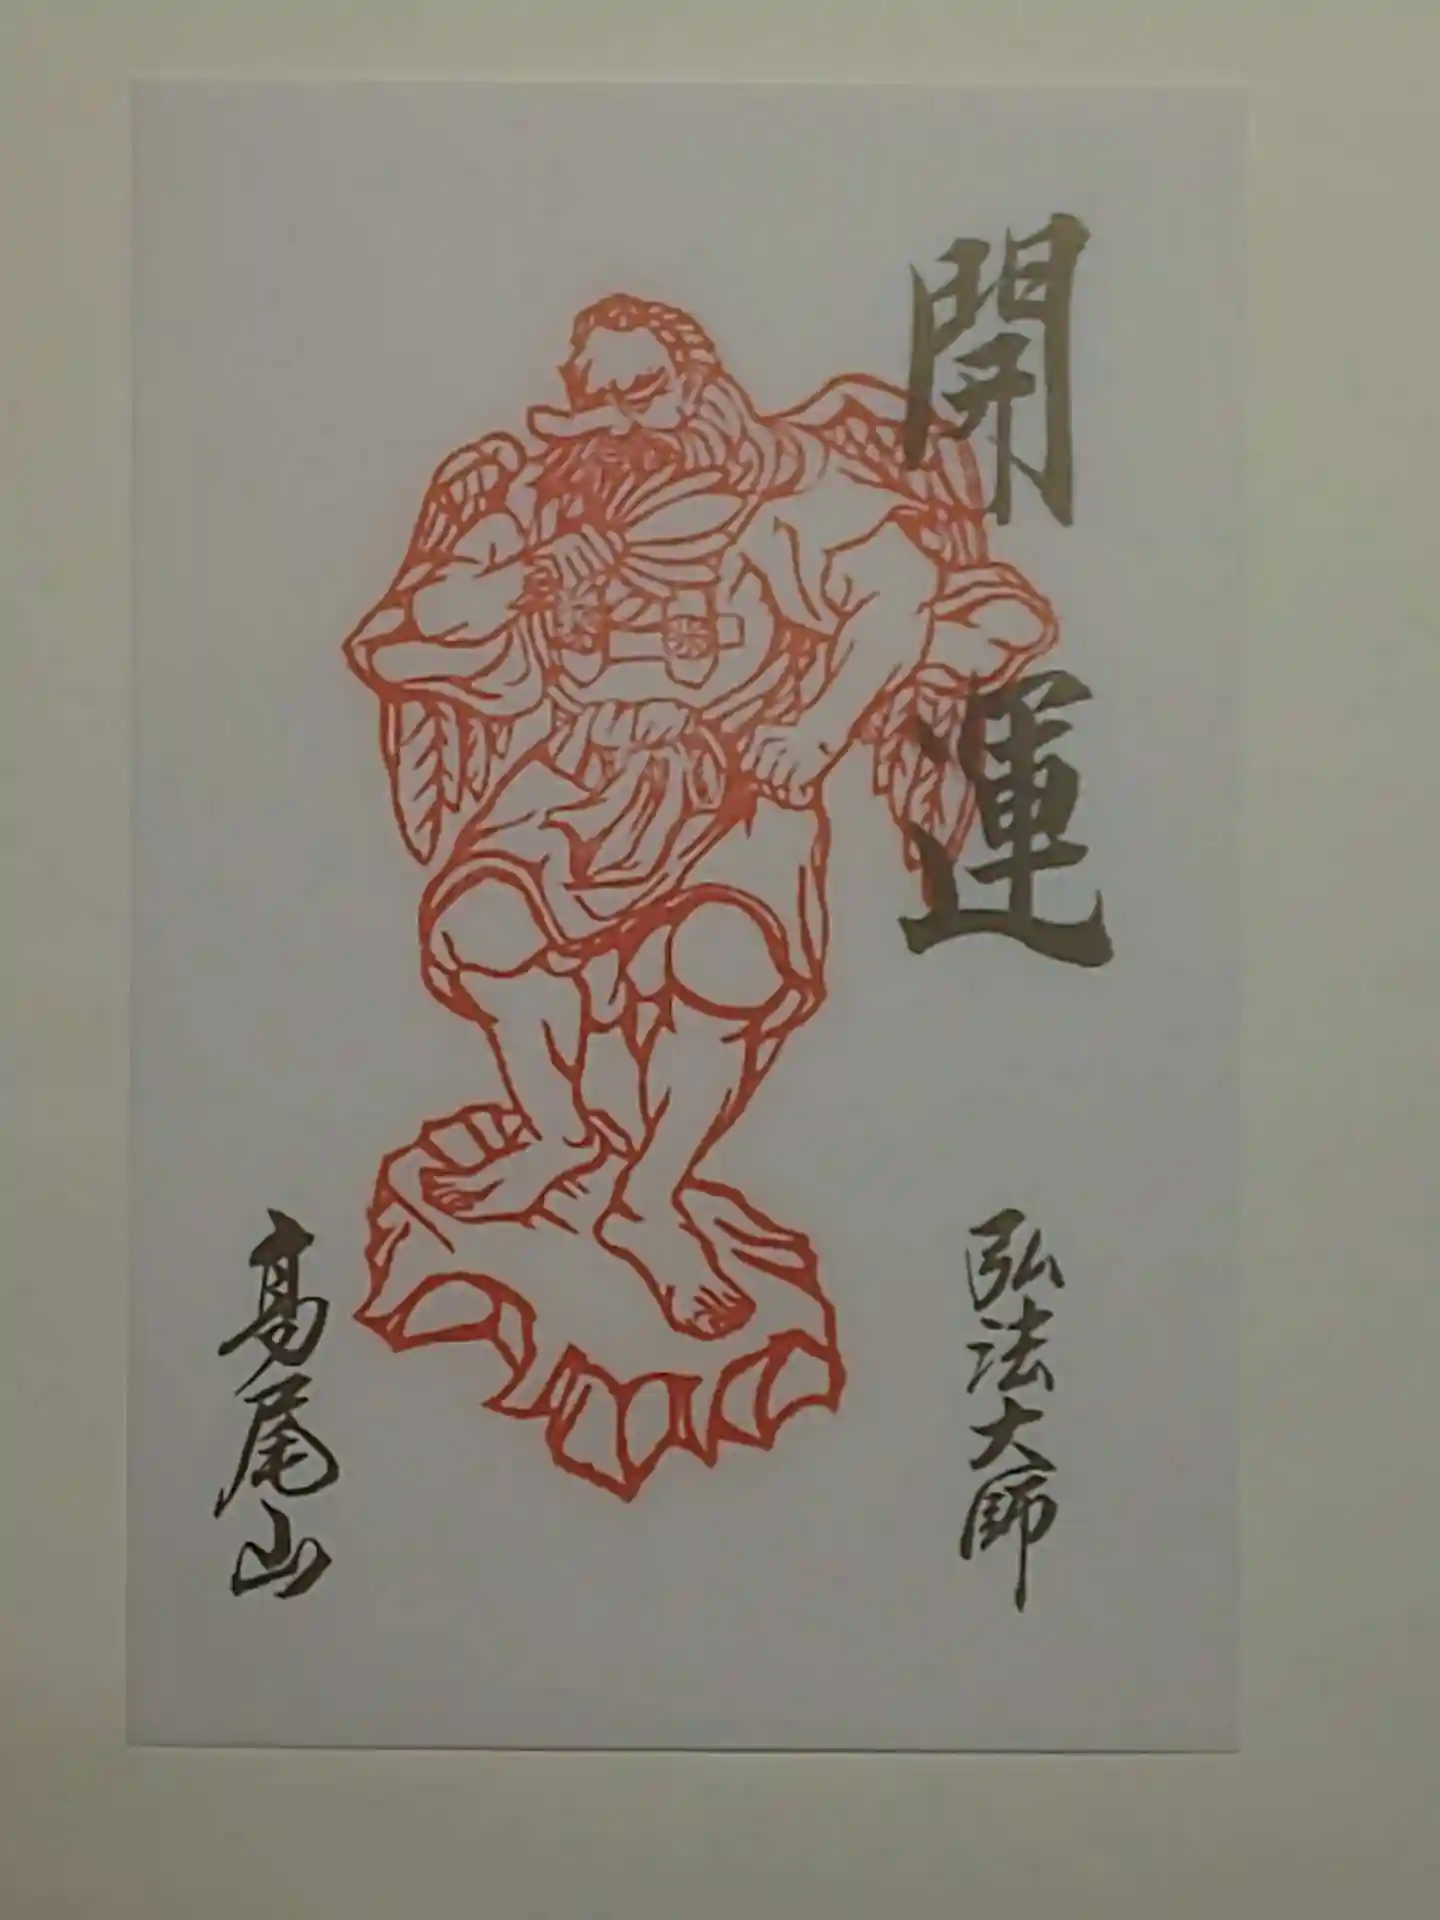 開運
弘法大師
高尾山